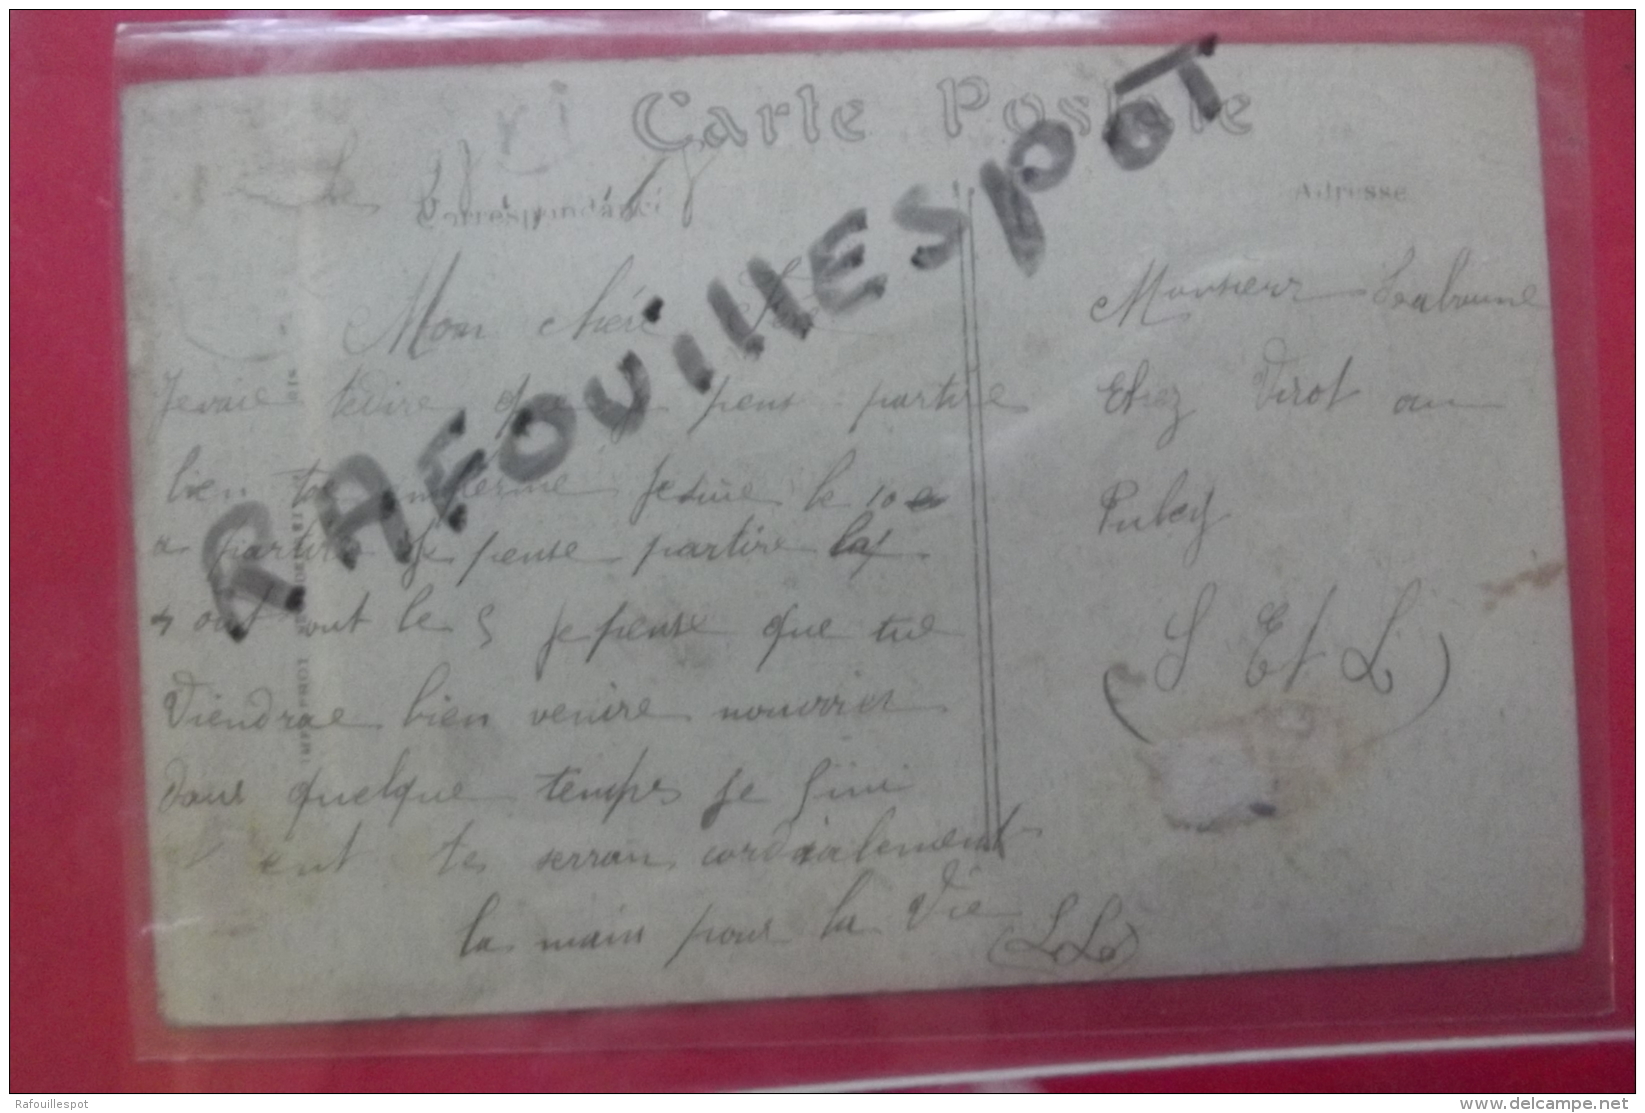 Carte Postale
Correspondance
Adresse
RAFOUILLESPOT
le
Mon cher
Jevaie tedire que peux partire
bien to Jesuie le 10
a partire Je pense partire la
4 out out le 5 Jepense que tue
Viendrae bien venire nouvrir
dans quelque temps Je fini
ent te serran cordialement
la main pour la Vie
(L L)
Monsieur Labrune
Chez Virot au
Puley
S Et L
Rafouillespot
www.delcampe.net